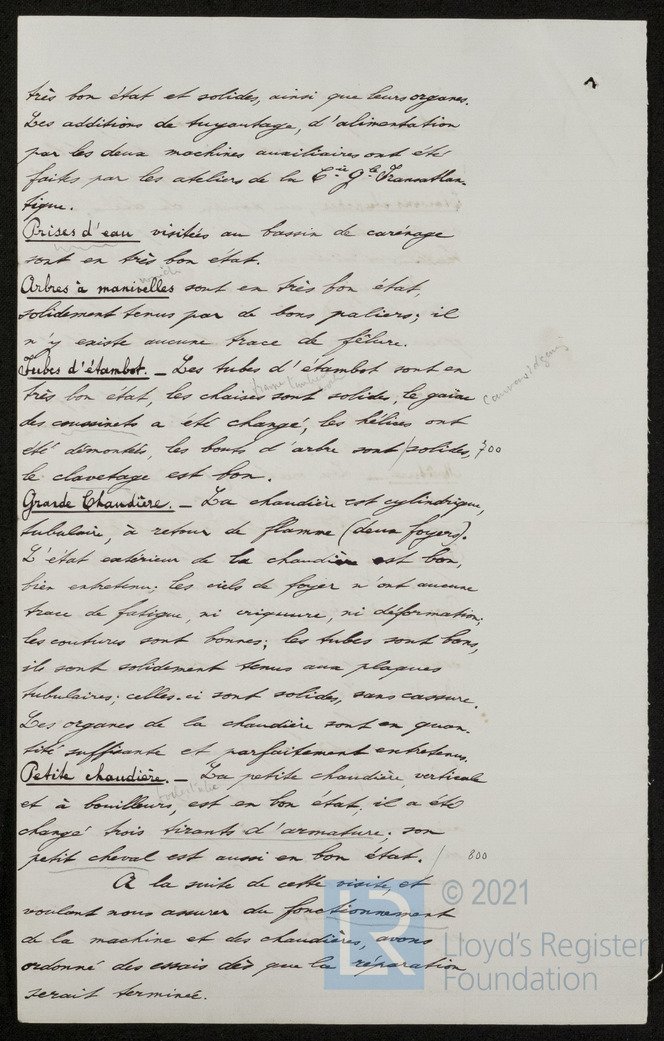 très bon état et solides, ainsi que leurs organes.
Les additions de tuyautage, d'alimentation
par les deux machines auxiliaires ont été
faites par les ateliers de la Cie Gle Transatlan-
tique.
Prises d'eau visitées au bassin de carénage
sont en très bon état.
Arbres à manivelles sont en très bon état,
solidement tenus par de bons paliers; il
n'y existe aucune trace de fêlure.
Tubes d'étambot. _ Les tubes d'étambot sont en
très bon état, les chaises sont solides, le gaïac
des coussinets a été changé, les hélices ont
été démontés, les bouts d'arbre sont / solides, 700
le clavetage est bon.
Grande Chaudière. _ La chaudière est cylindrique,
tubulaire, à retour de flamme (deux foyers).
L'état extérieur de la chaudière est bon,
bien entretenu; les ciels de foyer n'ont aucune
trace de fatigue, ni criquure, ni déformation;
les coutures sont bonnes; les tubes sont bons,
ils sont solidement tenus aux plaques
tubulaires; celles-ci sont solides, sans cassure.
Les organes de la chaudière sont en quan-
tité suffisante et parfaitement entretenus.
Petite chaudière. _ La petite chaudière verticale
et à bouilleurs, est en bon état, il a été
changé trois tirants d'armature; son
petit cheval est aussi en bon état. / 800
A la suite de cette visite, et
voulant nous assurer du fonctionnement
de la machine et des chaudières, avons
ordonné des essais dès que la réparation
serait terminée.
© 2021
Lloyd's Register
Foundation
LR